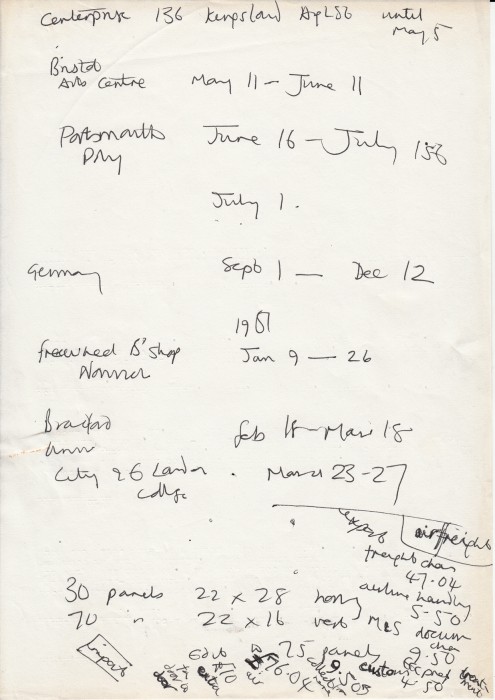 Centerprise 136 Kingsland High St until
May 5
Bristol
Arts Centre May 11 - June 11
Portsmouth
Poly June 16 - July 1
July 1.
Germany Sept 1 — Dec 12
1981
Freewheel B'shop
Norwich Jan 9 — 26
Bradford
Univ Feb 18 - Mar 18
City of London
College March 23-27
export airfreight
freight chan
47.04
airline handling
5.50
30 panels 22 x 28 horiz
70 " 22 x 16 vert
docum
9.50
import
75 panels
door
to
door
extra
air
76.04
9.50
custom
4.50